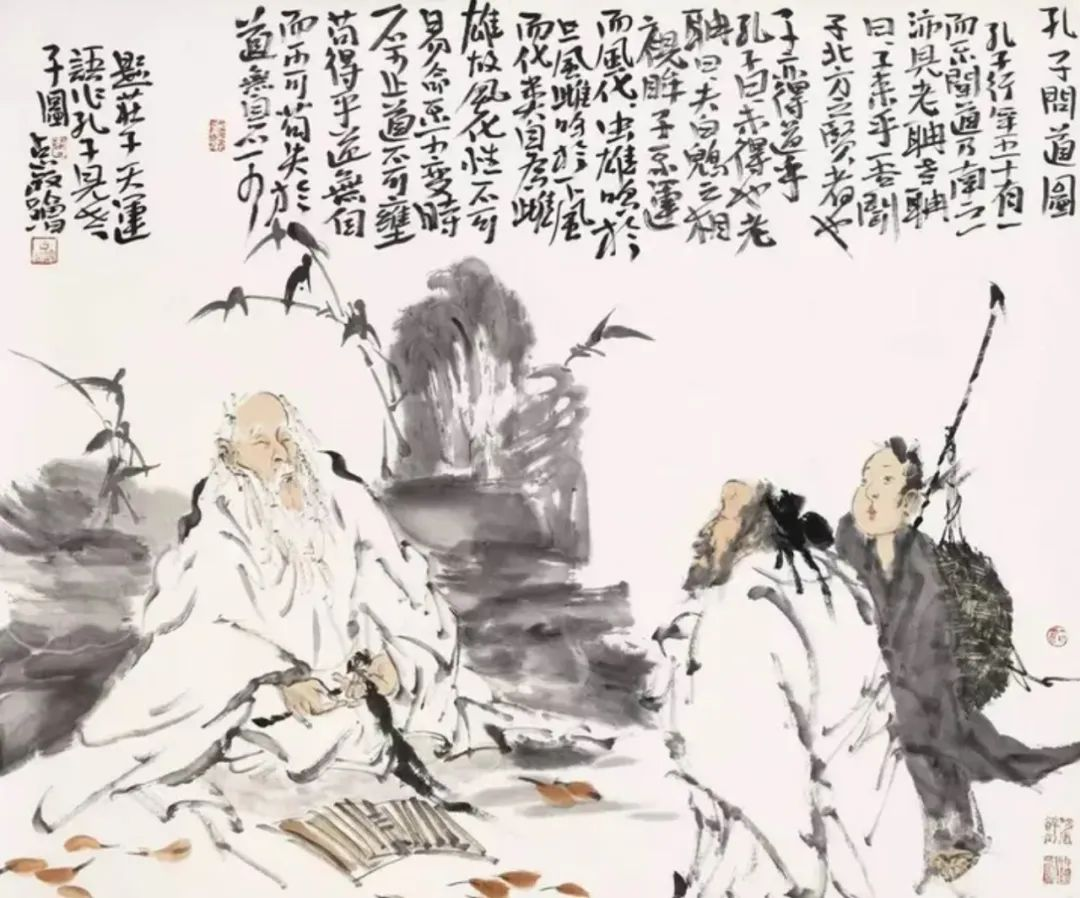 孔子問道圖
孔子行年五十有一
而不聞道乃南之
沛見老聃老聃
曰子来乎吾聞
子北方之賢者也
子亦得道乎
孔子曰未得也老
聃曰夫白鶂之相
視眸子不運
而風化虫雄鳴於
上風雌鳴於下風
而化类自為雌
雄故風化性不可
易命不可變時
不可止道不可壅
苟得乎道無自
而不可苟失於
道無自而可
題莊子天運
語作孔子見老
子圖